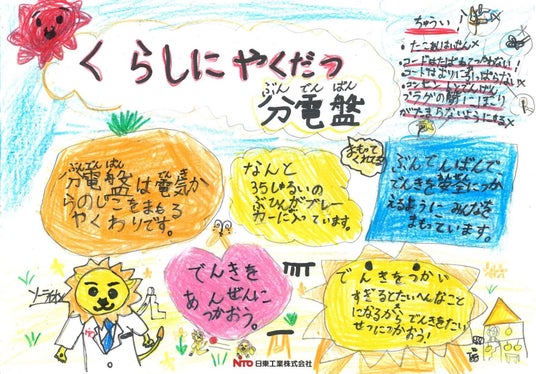 くらしにやくだつ
ぶん でん ばん
分電盤
ちゅうい
・たこ足はいせん×
・コードはたばねてつかわない！
・コードはむりにひっぱらない×
・コンセントとでんげん
プラグの間にほこり
がたまらないようにする×
ぶんでんばん でんき
分電盤は電気か
らのじこをまもる
やくわりです。
なんと
35しゅるいの
ぶひんがブレー
カーに入っています。
まもって
くれてる!
ぶんでんばんで
でんきを安全につか
えるように みんなを
まもっています。
でんきを
あんぜんに
つかおう。
でんきをつかい
すぎるとたいへんなこと
になるから でんきをたい
せつにつかおう!
NITO 日東工業株式会社